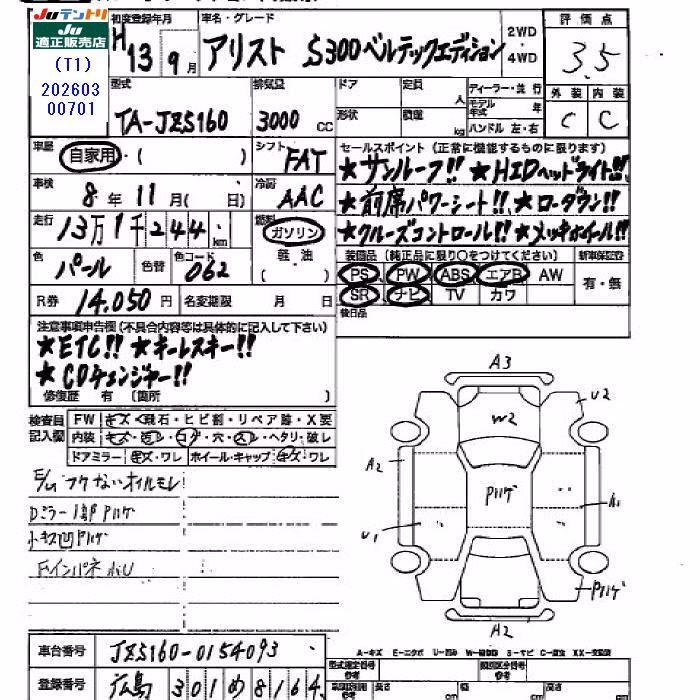 Juテントリ
Ju
適正販売店
(T1)
202603
00701
初度登録年月
H13 9月
車名・グレード
アリスト S300ベルテックエディション
2WD
・
4WD
評価点
3.5
型式
TA-JZS160
排気量
3000 CC
ドア
定員
人
形状
積量
kg
ディーラー・並行
モデル年式 年
ハンドル 左・右
外装 内装
C C
車歴
自家用・( )
シフト
FAT
セールスポイント (正常に機能するものに限ります)
★サンルーフ!! ★HIDヘッドライト!!
★前席パワーシート!! ★ローダウン!!
★クルーズコントロール!! ★メッキホイール!!
車検
8年11月( 日)
冷房
AAC
走行
13万1千244km
燃料
ガソリン
軽油
( )
色
パール
色替
色コード
062
装備品 (純正品に限り○をつけてください)
PS PW ABS エアB AW
SR ナビ TV カワ
新車保証書
有・無
R券 14.050円
名変期限 月 日
後日品
注意事項申告欄(不具合内容等は具体的に記入して下さい)
★ETC!! ★キーレスキー!!
★CDチェンジャー!!
修復歴 有 〔箇所 〕
検査員
記入欄
FW キズ・飛石・ヒビ割・リペア跡・X要
内装 キズ・汚レ・コゲ・穴・スレ・ヘタリ・破レ
ドアミラー キズ・ワレ ホイール・キャップ キズ・ワレ
E/G フケない オイルモレ
Dミラー1部Pハゲ
小キズ凹Pハゲ
A3
U2
W2
A2
Pハゲ
A1
U1
Pハゲ
A2
車台番号 JZS160-0154093
A-キズ E-エクボ U-凹み W-補修跡 S-サビ C-腐食 XX-交換済
登録番号 広島 301 め 8164
型式指定番号
参考
類別区分番号
参考
長さ cm
幅 cm
高さ cm